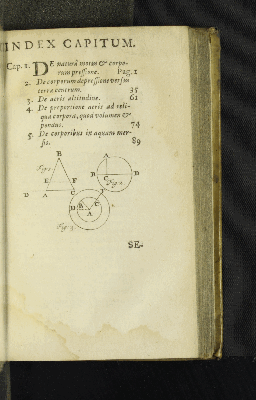 INDEX CAPITUM.
Cap. 1. DE naturâ motus & corpo-
rum pressione. Pag. 1
2. De corporum depressione versus
terra centrum. 35
3. De aeris altitudine. 61
4. De proportione aeris ad reli-
qua corpora, quoad volumen &
pondus. 74
5. De corporibus in aquam mer-
sis. 89
B
Fig. 1
E F
D A C
A
B
D
C
Fig. 2
D B C
A
Fig. 3
SE-